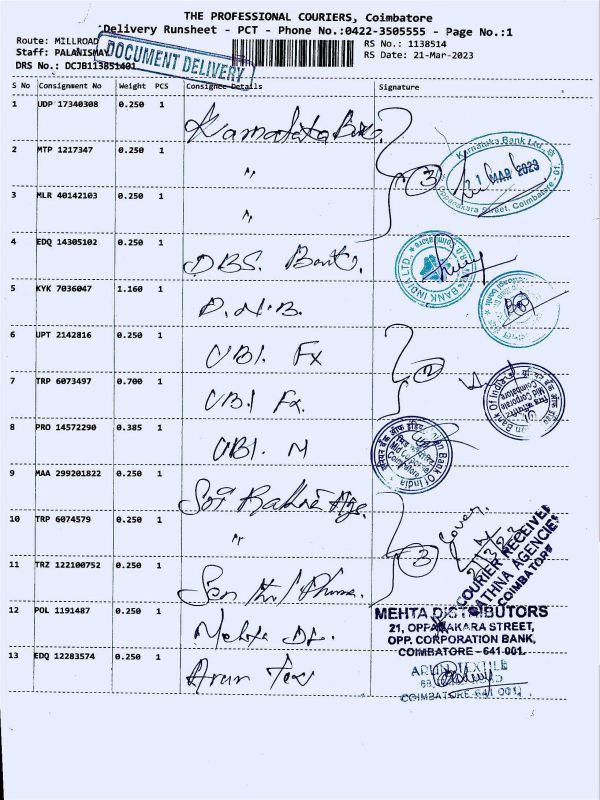 THE PROFESSIONAL COURIERS, Coimbatore
Delivery Runsheet - PCT - Phone No.:0422-3505555 - Page No.:1
Route: MILLROAD
RS No.: 1138514
Staff: PALANISMAY
RS Date: 21-Mar-2023
DRS No.: DCJB113851401
DOCUMENT DELIVERY
S No Consignment No Weight PCS Consignee Details Signature
1 UDP 17340308 0.250 1 Karnataka
2 MTP 1217347 0.250 1 〃
3 MLR 40142103 0.250 1 〃
3
Karnataka Bank Ltd.,
21 MAR 2023
Oppanakara Street, Coimbatore - 01.
4 EDQ 14305102 0.250 1 DBS. Bank.
BANK INDIA LTD.
5 KYK 7036047 1.160 1
6 UPT 2142816 0.250 1 UBI. Fx
7 TRP 6073497 0.700 1 UBI Fx.
2
Bank Of India
Mid Corporate
Coimbatore
8 PRO 14572290 0.385 1 UBI. M
Bank Of India
Mid Corporate
Coimbatore
9 MAA 299201822 0.250 1
10 TRP 6074579 0.250 1 〃
11 TRZ 122100752 0.250 1
3
Cover.
COURIER RECEIVED
RATHNA AGENCIES
COIMBATORE
12 POL 1191487 0.250 1 Mehta
MEHTA DISTRIBUTORS
21, OPPANAKARA STREET,
OPP. CORPORATION BANK,
COIMBATORE - 641 001.
13 EDQ 12283574 0.250 1 Arun Tex
ARUN TEXTILE
COIMBATORE-641 001